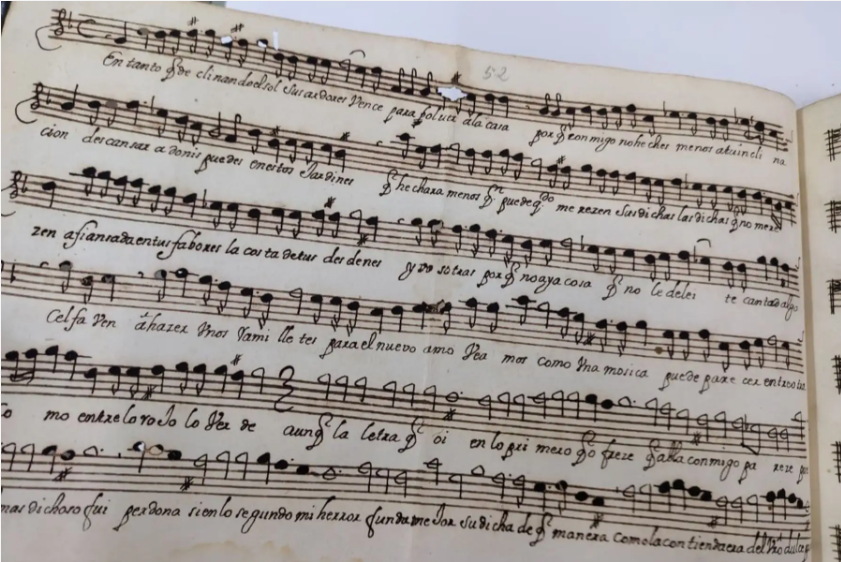 52
En tanto q̃ de clinando el sol sus ardores Vence para bolver a la casa por q̃ conmigo no heches menos a tu incli na
cion descansar a donis puedes en estos Jardines q̃ hechara menos q.n puede q.do me rezen sus dichas las dichas q̃ no mere
zen afiansada en tus fabores la costa de tus des denes y vo sotras por q̃ no aya cosa q̃ no le delei te cantad algo
Celfa Ven a hazer Vnos Vami lle tes para el nuevo amo Vea mos como Vna mosica puede pare cer entre
mo entre lo roJo lo Ver de aunq̃ la letra q̃ oi en lo pri mero q̃ o freze q̃ abla conmigo pa reze
mas dichoso fui perdona si en lo segundo mi herror funda me Jor su dicha de q̃ manera como la contienda era del